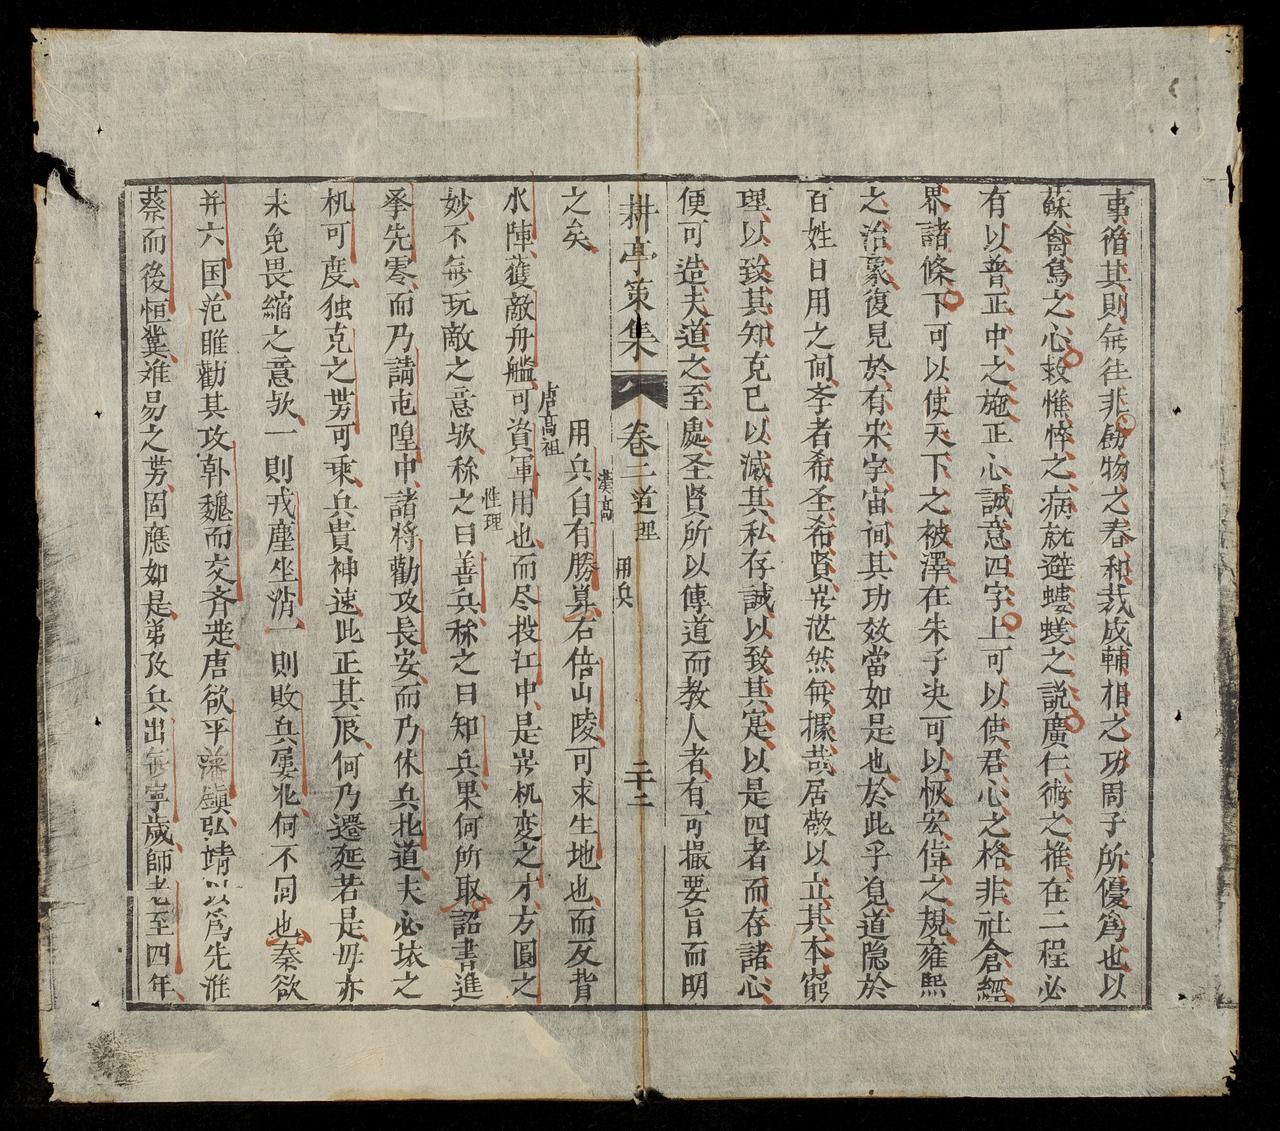 事循其則無往非飭物之春和裁成輔相之功周子所優爲也以
蘇會鳥之心救憔悴之病就避螻蟻之説廣仁術之推在二程必
有以普正中之施正心誠意四字上可以使君心之格非社倉經
界諸條下可以使天下之被澤在朱子決可以恢宏偉之規雍熙
之治象復見於有宋宇宙间其功效當如是也於此乎覓道隐於
百姓日用之间斈者希圣希賢岂茫然無據哉居敬以立其本窮
理以致其知克己以滅其私存誠以致其寔以是四者而存諸心
便可造夫道之至處圣賢所以傳道而教人者有可撮要旨而明
耕亭策集 卷二 道理 用兵 二十二
之矣
用兵自有勝算右倍山陵可求生地也而反背
漢高
唐高祖
水陣獲敵舟艦可資軍用也而尽投江中是岂机変之才方圓之
性理
妙不無玩敵之意欤称之曰善兵称之曰知兵果何所取詔書進
拳先零而乃請屯隍中諸将勸攻長安而乃休兵北道夫必抹之
机可度独克之势可乘兵貴神速此正其辰何乃遷延若是毋亦
未免畏縮之意欤一則戎塵坐消一則敗兵屢北何不同也秦欲
并六国范睢勸其攻韓魏而交斉楚唐欲平藩鎮弘靖以爲先淮
蔡而後恒冀难易之势固應如是弟攷兵出無寧歲師老至四年